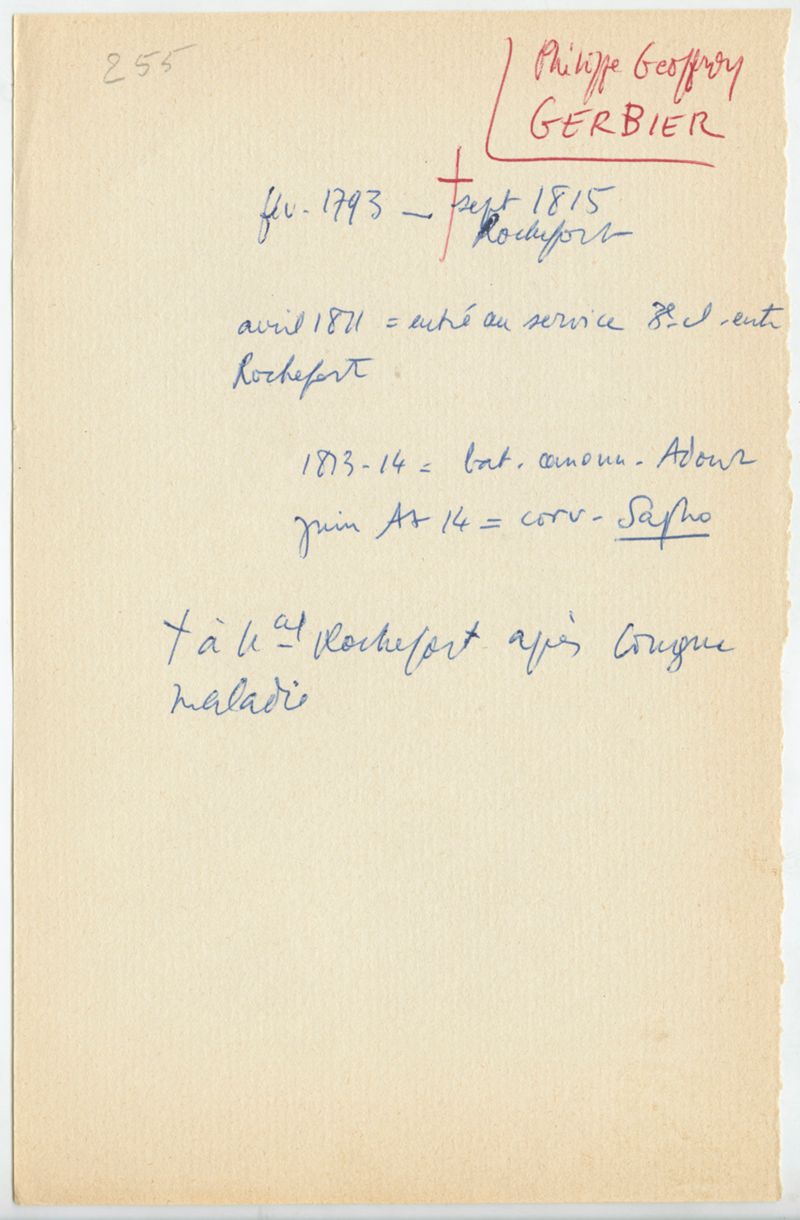 255
Philippe Geoffroy
GERBIER
fév. 1793 — † sept 1815
Rochefort
avril 1811 = entré au service 3e cl. entr
Rochefort
1813-14 = bat. canonn. Adour
juin At 14 = corv. Sapho
† à h^al Rochefort après longue
maladie